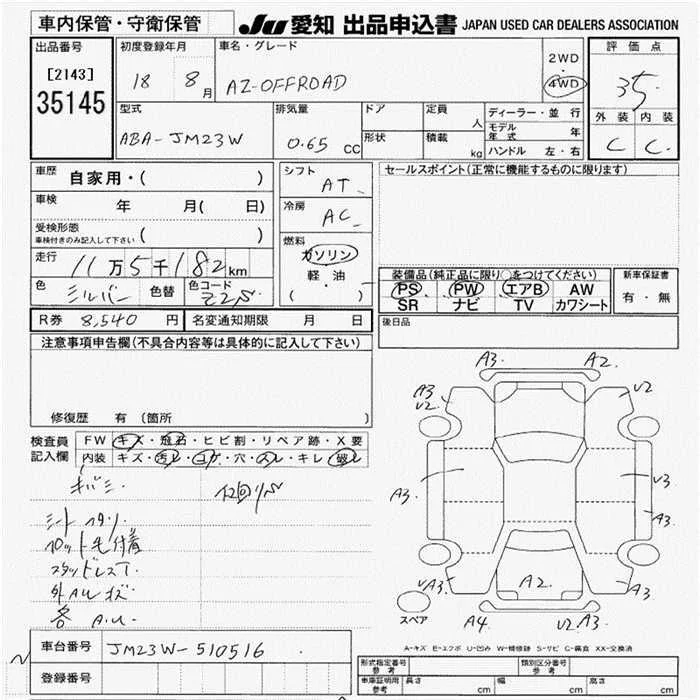 車内保管・守衛保管
JU 愛知 出品申込書 JAPAN USED CAR DEALERS ASSOCIATION
出品番号
[2143]
35145
初度登録年月
18 8月
車名・グレード
AZ-OFFROAD
2WD
・
4WD
評価点
35
外装 内装
C C
型式
ABA-JM23W
排気量
0.65 CC
ドア
形状
定員
人
積載
kg
ディーラー・並行
モデル年式 年
ハンドル 左・右
車歴
自家用・( )
車検
年 月( 日)
受検形態
車検付きのみ記入して下さい ( )
走行
11万5千182km
色
シルバー
色替
色コード
Z2S
シフト
AT
冷房
AC
燃料
ガソリン
・
軽油
( )
セールスポイント(正常に機能するものに限ります)
装備品(純正品に限り○をつけてください)
PS PW エアB AW
SR ナビ TV カワシート
新車保証書
有・無
R券 8,540 円
名変通知期限 月 日
後日品
注意事項申告欄(不具合内容等は具体的に記入して下さい)
修復歴 有 (箇所 )
検査員
記入欄
FW キズ・飛石・ヒビ割・リペア跡・X要
内装 キズ・汚レ・コゲ・穴・スレ・キレ・破レ
キバミ
シートスタリ
フロット毛付着
スタッドレスT
外AWキズ
各 A.U.
A3. A2.
A3
V2.
V2
A3.
V3
A3.
A3.
A2.
A3
A4
V2 A3.
スペア
A-キズ E-エクボ U-凹み W-補修跡 S-サビ C-腐食 XX-交換済
車台番号
JM23W-510516
登録番号
形式指定番号
参考
類別区分番号
参考
車庫証明用
参考
長さ cm
幅 cm
高さ cm